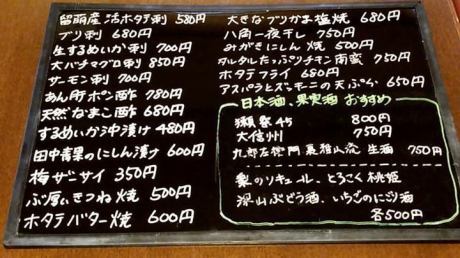 留萌産 活ホタテ刺 580円
ブリ刺 680円
生するめいか刺 700円
大バチマグロ刺 850円
サーモン刺 700円
あん肝ポン酢 780円
天然なまこ酢 680円
するめいか沖漬け 480円
田中青果のにしん漬け 600円
梅ザーサイ 350円
ぶ厚いきつね焼 500円
ホタテバター焼 600円
大きなブリかま塩焼 680円
八角一夜干し 750円
みがきにしん焼 500円
タルタルたっぷりチキン南蛮 750円
ホタテフライ 680円
アスパラとズッキーニの天ぷら 650円
日本酒、果実酒 おすすめ
獺祭45 800円
大信州 750円
九郎左衛門 裏雅山流 生酒 750円
梨のリキュール、とろこく桃姫
深山ぶどう酒、いちごのにごり酒
各500円